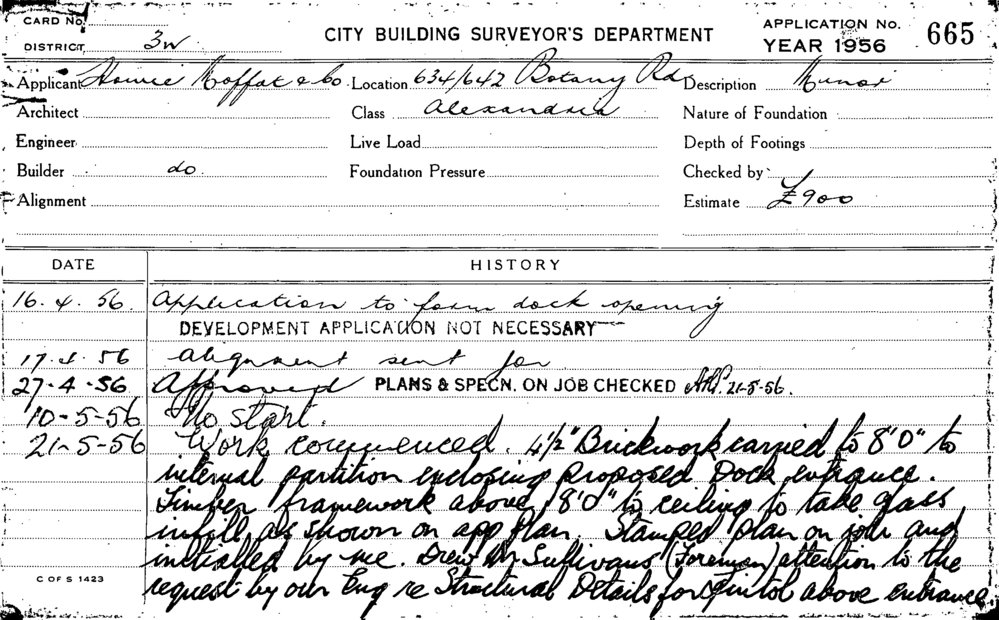 CARD No.
DISTRICT 3W
CITY BUILDING SURVEYOR'S DEPARTMENT
APPLICATION No. 665
YEAR 1956
Applicant Howie Moffat & Co Location 634/642 Botany Rd Description Minor
Architect Class Alexandria Nature of Foundation
Engineer Live Load Depth of Footings
Builder do. Foundation Pressure Checked by
Alignment Estimate £900
DATE HISTORY
16.4.56. Application to form dock opening
DEVELOPMENT APPLICATION NOT NECESSARY
17.4.56 Alignment sent for
27-4-56 Approved PLANS & SPECN. ON JOB CHECKED 21-5-56.
10-5-56 No start.
21-5-56 Work commenced. 4½" Brickwork carried to 8'0" to
internal partition enclosing proposed Dock entrance.
Timber framework above 8'0" to ceiling to take glass
infill as shown on app plan. Stamped plan on job and
initialled by me. Drew Mr Sullivans (Foreman) attention to the
request by our Eng re Structural Details for Lintol above entrance.
C OF S 1423